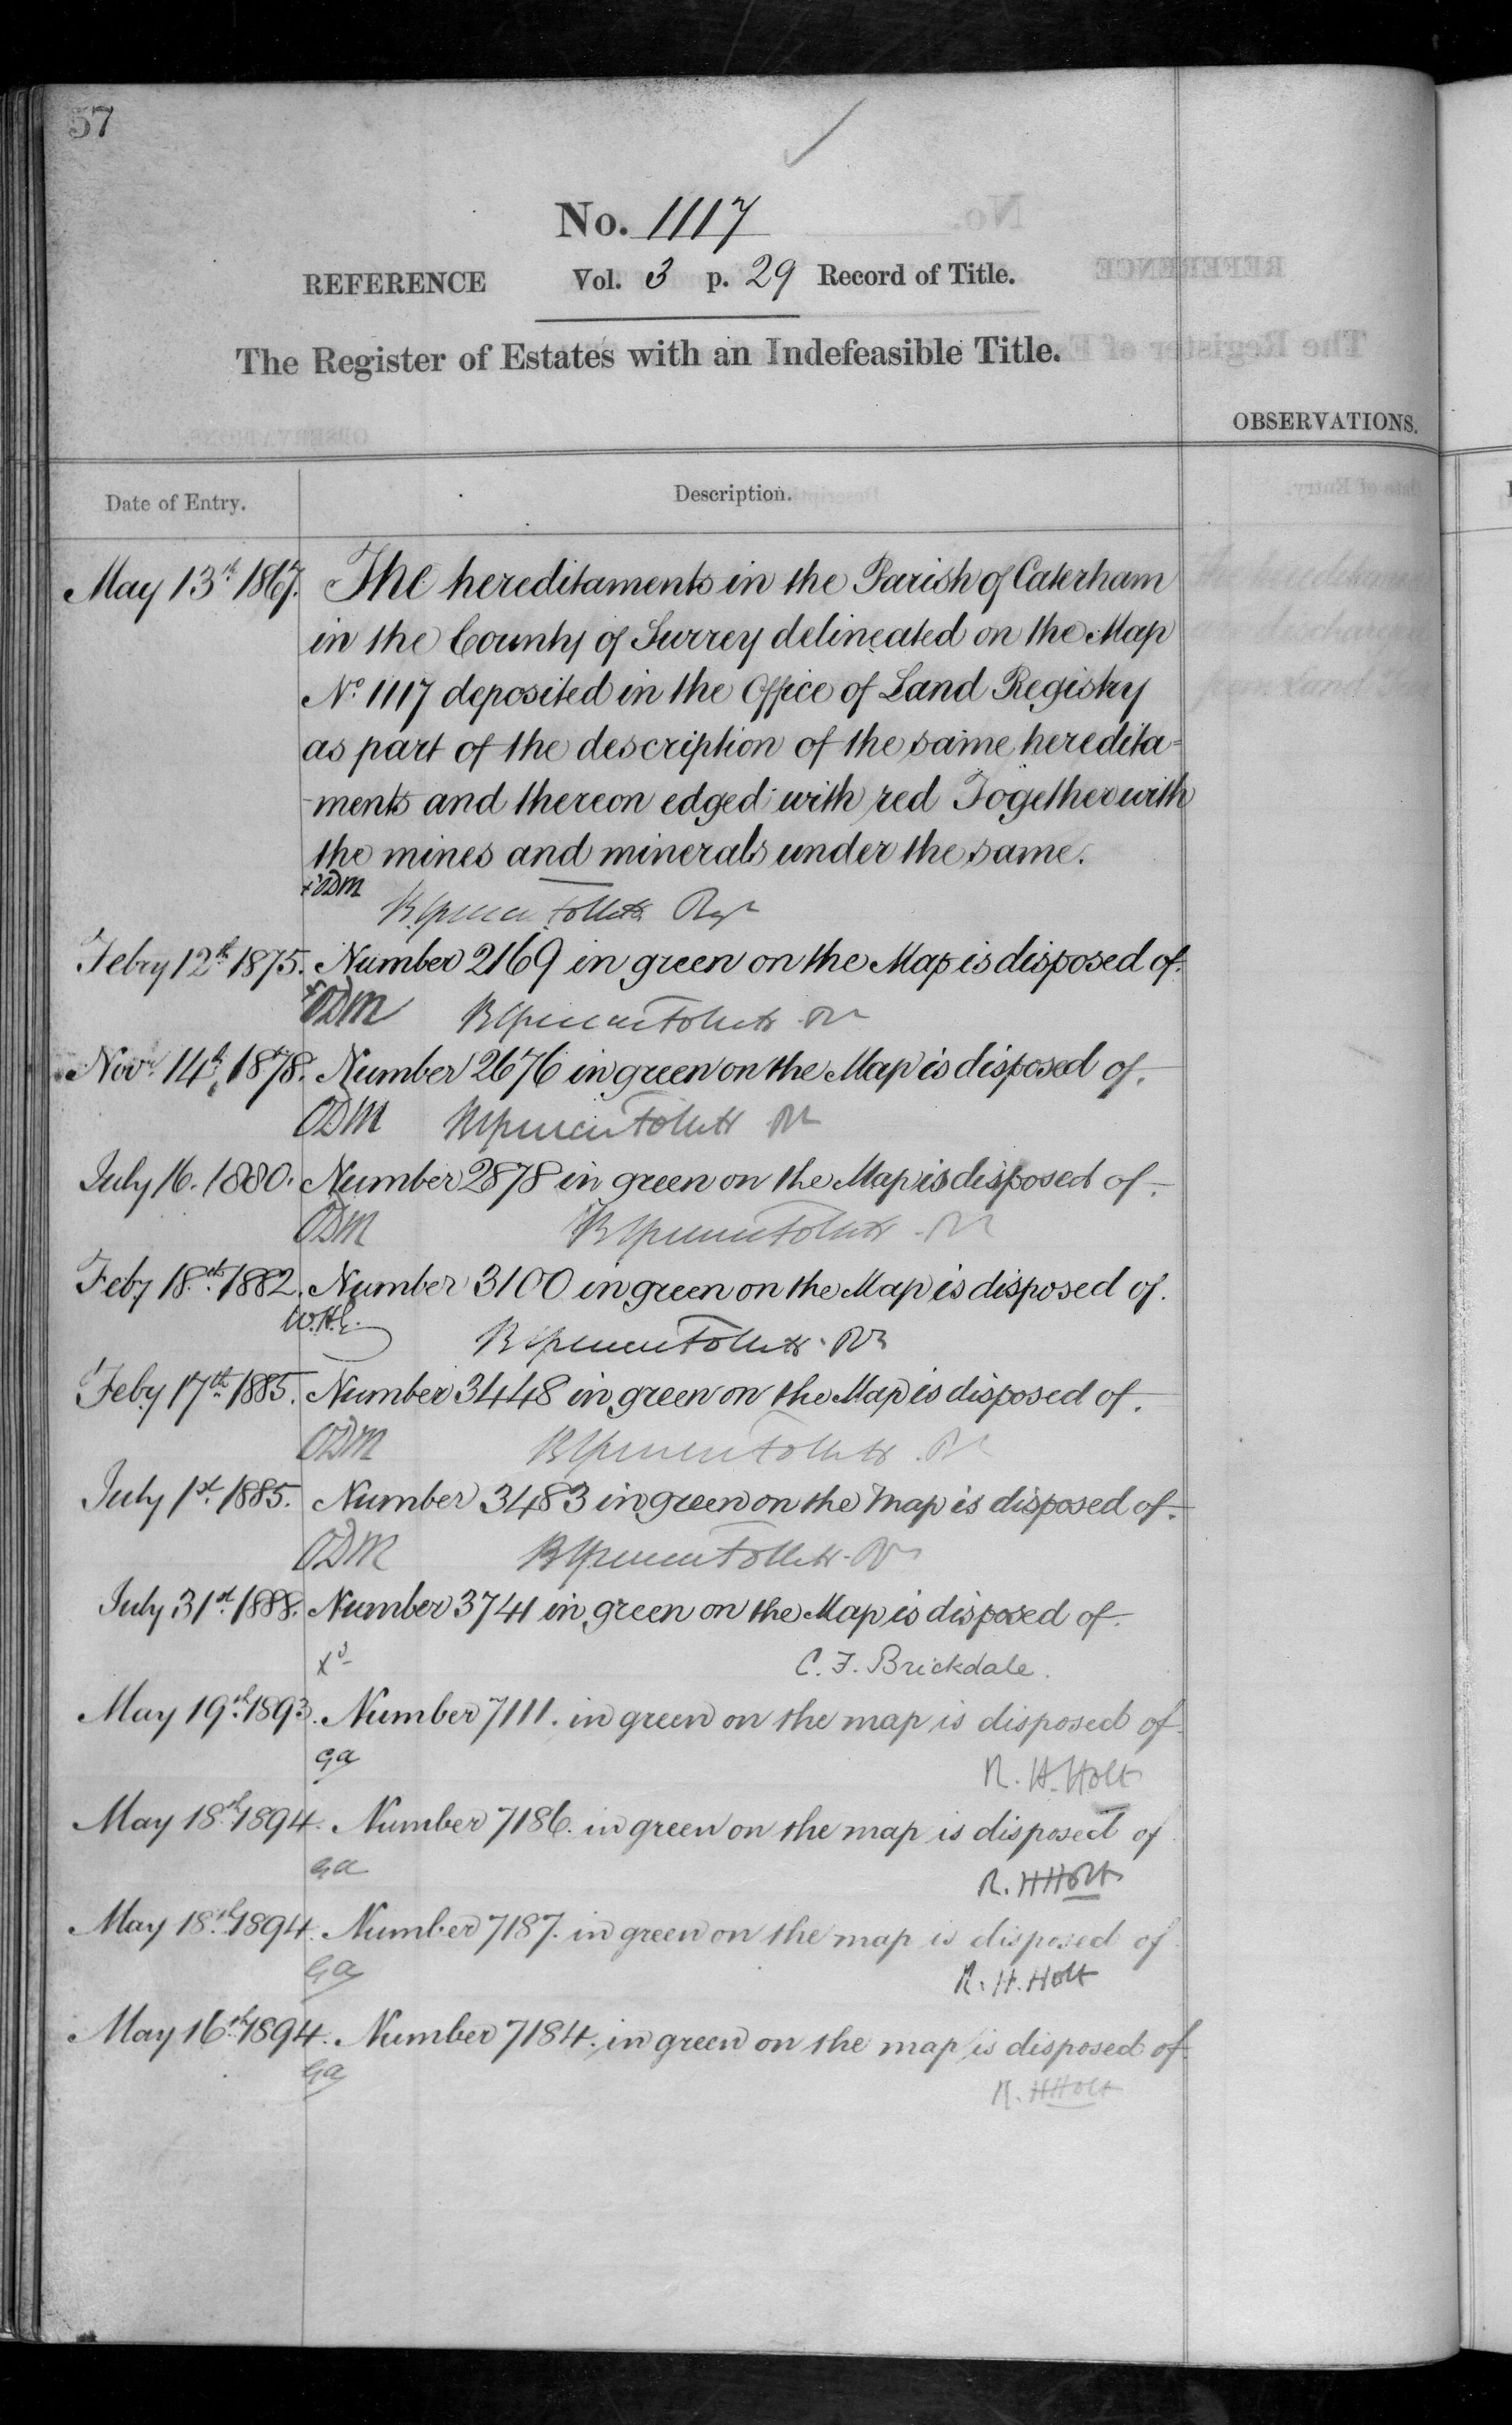 57
No. 1117
REFERENCE Vol. 3 p. 29 Record of Title.
The Register of Estates with an Indefeasible Title.
OBSERVATIONS.
Date of Entry. Description.
May 13th 1867. The hereditaments in the Parish of Caterham
in the County of Surrey delineated on the Map
No 1117 deposited in the Office of Land Registry
as part of the description of the same heredita=
-ments and thereon edged with red Together with
the mines and minerals under the same.
ODM
Follett Regr
Febry 12th 1875. Number 2169 in green on the Map is disposed of.
ODM Follett
Novr 14th, 1878. Number 2676 in green on the Map is disposed of.
ODM Follett
July 16. 1880. Number 2878 in green on the Map is disposed of.
ODM Follett
Feby 18th 1882. Number 3100 in green on the Map is disposed of.
Follett
Feby 17th 1885. Number 3448 in green on the Map is disposed of.
ODM Follett
July 1st 1885. Number 3483 in green on the Map is disposed of.
ODM Follett
July 31st 1888. Number 3741 in green on the Map is disposed of.
C. F. Brickdale.
May 19th 1893. Number 7111. in green on the map is disposed of.
Ga R. H. Holt
May 18th 1894. Number 7186. in green on the map is disposed of
Ga R. H Holt
May 18th 1894. Number 7187. in green on the map is disposed of
Ga R. H. Holt
May 16th 1894. Number 7184. in green on the map is disposed of.
Ga R. H Holt